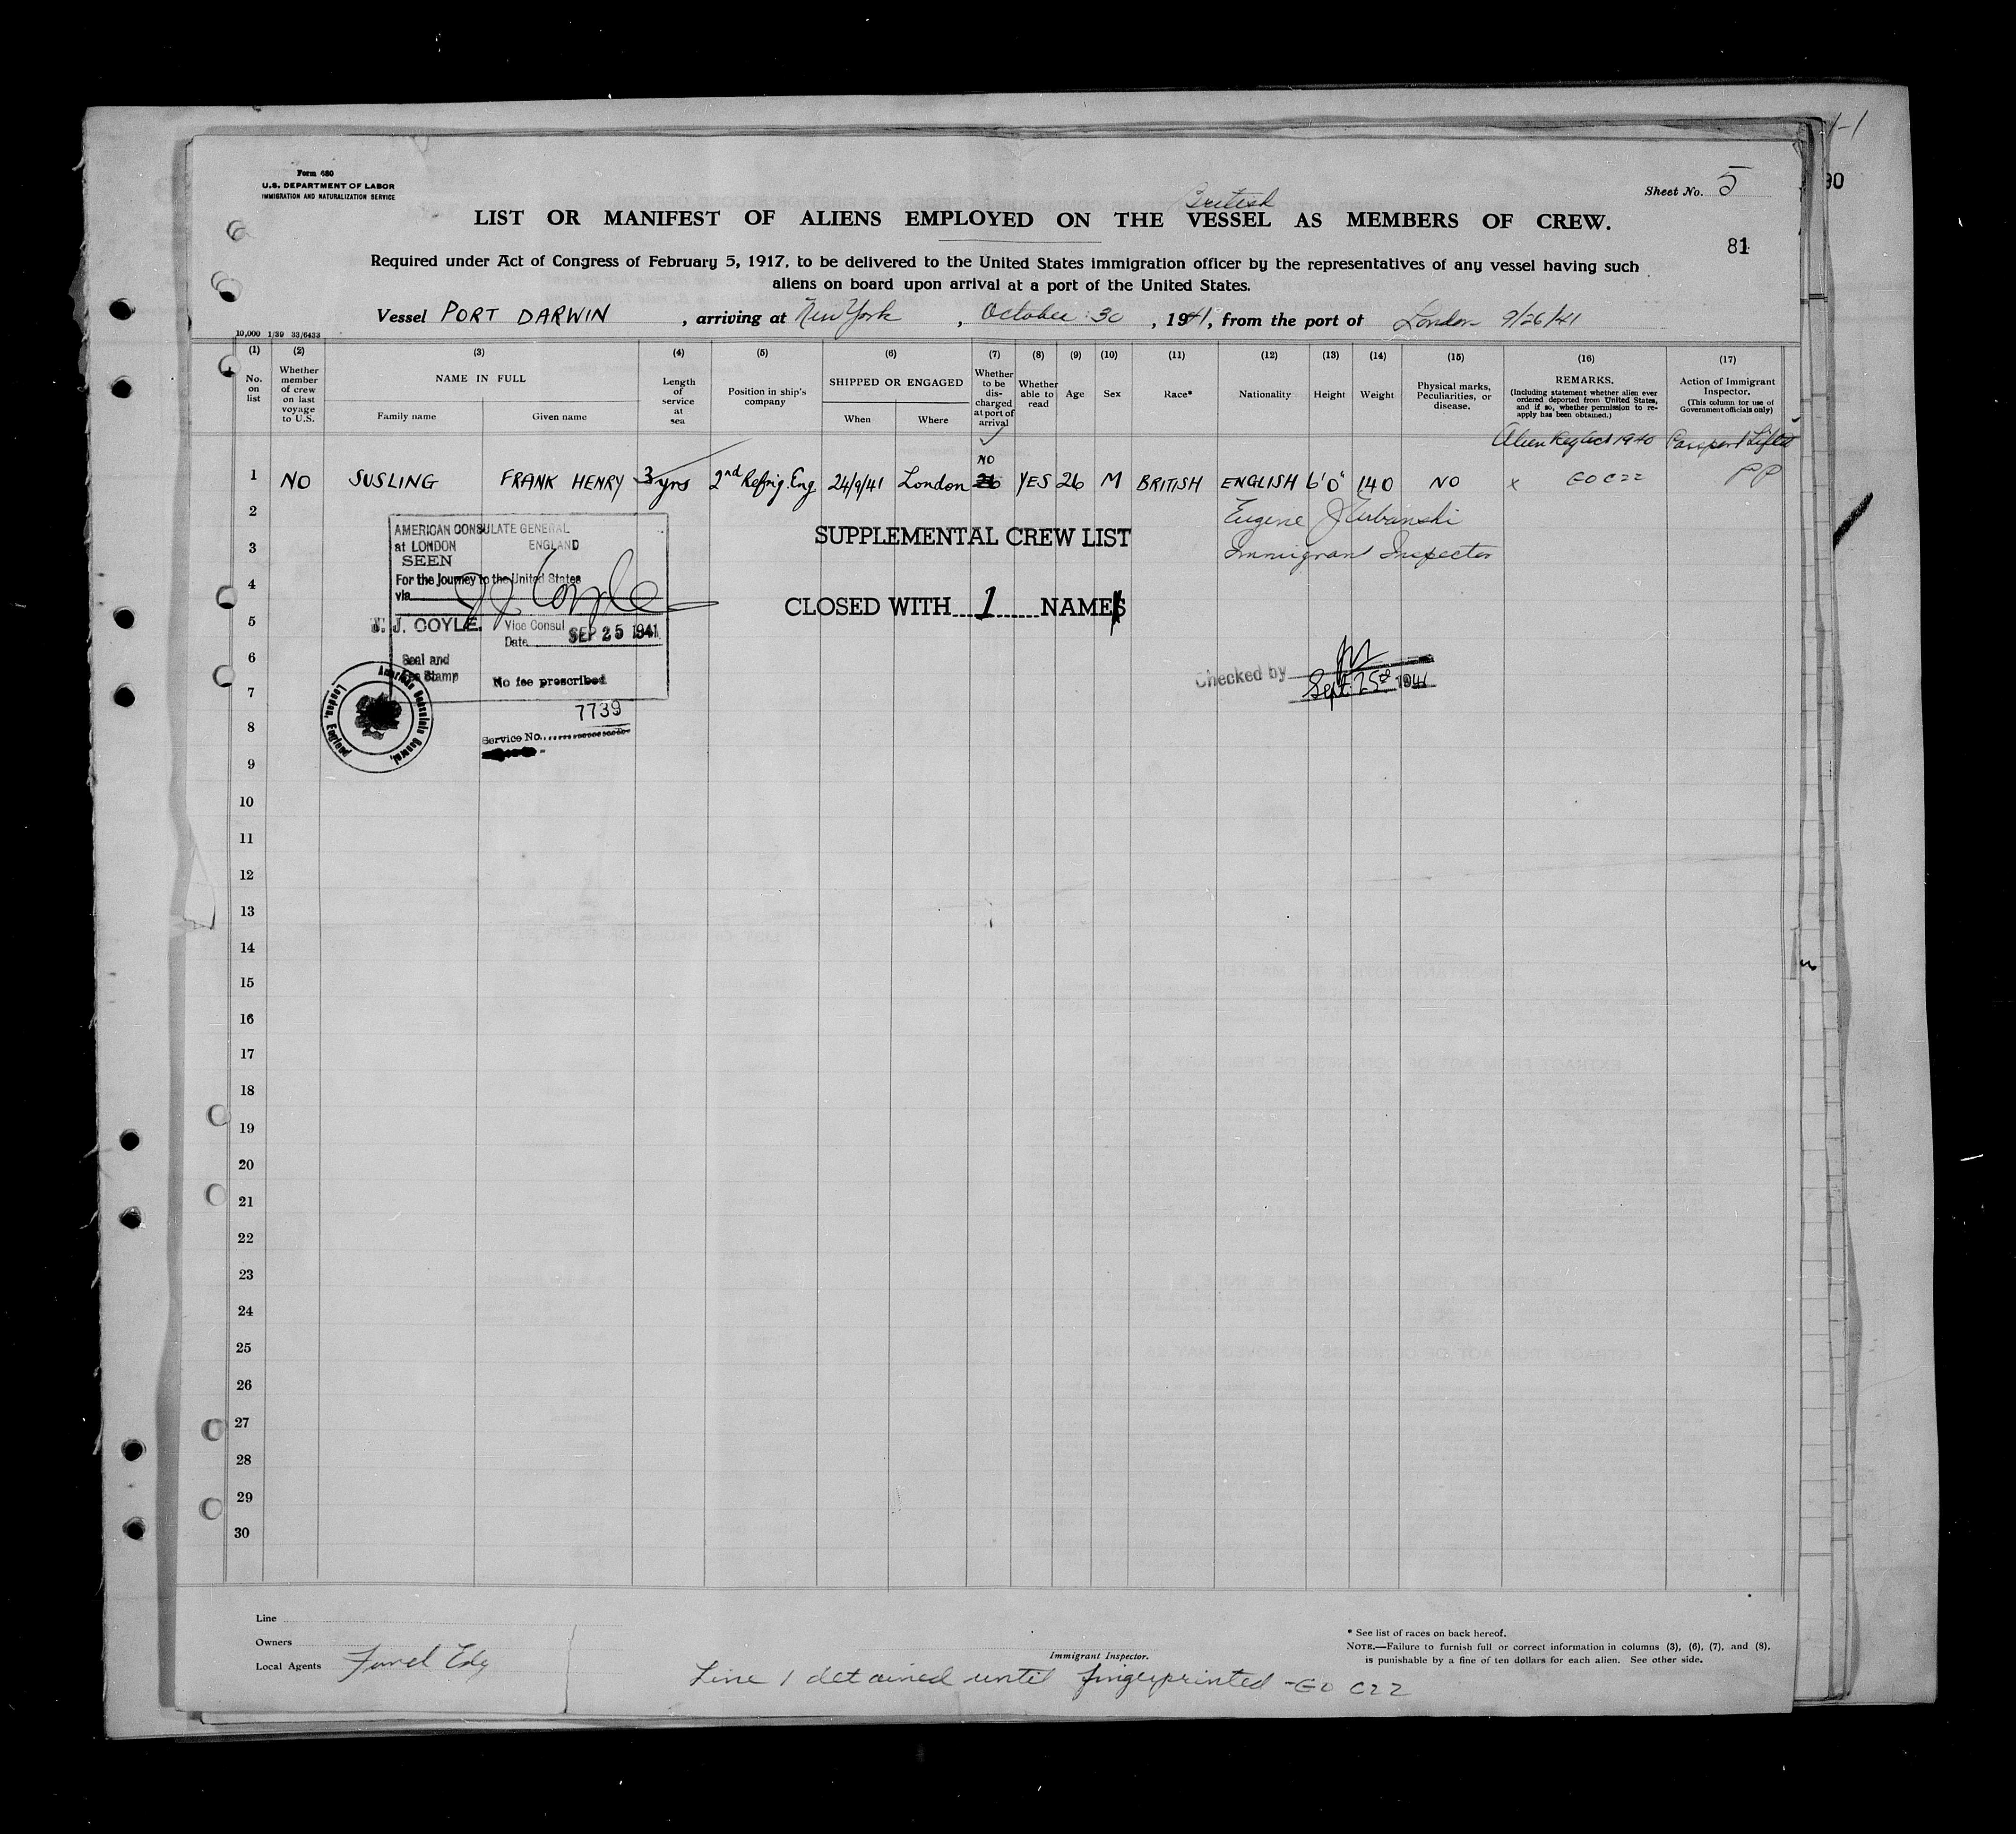 1-1
90
Form 680
U.S. DEPARTMENT OF LABOR
IMMIGRATION AND NATURALIZATION SERVICE
Sheet No. 5
British
LIST OR MANIFEST OF ALIENS EMPLOYED ON THE VESSEL AS MEMBERS OF CREW.
81
Required under Act of Congress of February 5, 1917, to be delivered to the United States immigration officer by the representatives of any vessel having such
aliens on board upon arrival at a port of the United States.
Vessel PORT DARWIN, arriving at New York, October 30, 1941, from the port of London 9/26/41
10,000 1/39 33/6433
(1) (2) (3) (4) (5) (6) (7) (8) (9) (10) (11) (12) (13) (14) (15) (16) (17)
No. on list
Whether member of crew on last voyage to U.S.
NAME IN FULL
Family name
Given name
Length of service at sea
Position in ship's company
SHIPPED OR ENGAGED
When
Where
Whether to be discharged at port of arrival
Whether able to read
Age
Sex
Race*
Nationality
Height
Weight
Physical marks, Peculiarities, or disease.
REMARKS.
(Including statement whether alien ever ordered deported from United States, and if so, whether permission to re-apply has been obtained.)
Action of Immigrant Inspector.
(This column for use of Government officials only)
Alien Reg Act 1940 Passport Lifted
NO
1 NO SUSLING FRANK HENRY 3 yrs 2nd Refrig. Eng 24/9/41 London YES 26 M BRITISH ENGLISH 6'0" 140 NO x
2
Eugene
3
Immigrant Inspector
4
5
6
7
8
9
10
11
12
13
14
15
16
17
18
19
20
21
22
23
24
25
26
27
28
29
30
AMERICAN CONSULATE GENERAL
at LONDON ENGLAND
SEEN
For the Journey to the United States
via
J.J. Coyle
J. J. COYLE. Vice Consul
Date SEP 25 1941
Seal and
Fee Stamp
No fee prescribed
American Consulate General, London, England
7739
Service No.
SUPPLEMENTAL CREW LIST
CLOSED WITH 1 NAMES
Checked by
Sept. 25th 1941
Line
Owners
Local Agents
Immigrant Inspector.
* See list of races on back hereof.
NOTE.—Failure to furnish full or correct information in columns (3), (6), (7), and (8),
is punishable by a fine of ten dollars for each alien. See other side.
Line 1 detained until fingerprinted - GO C22